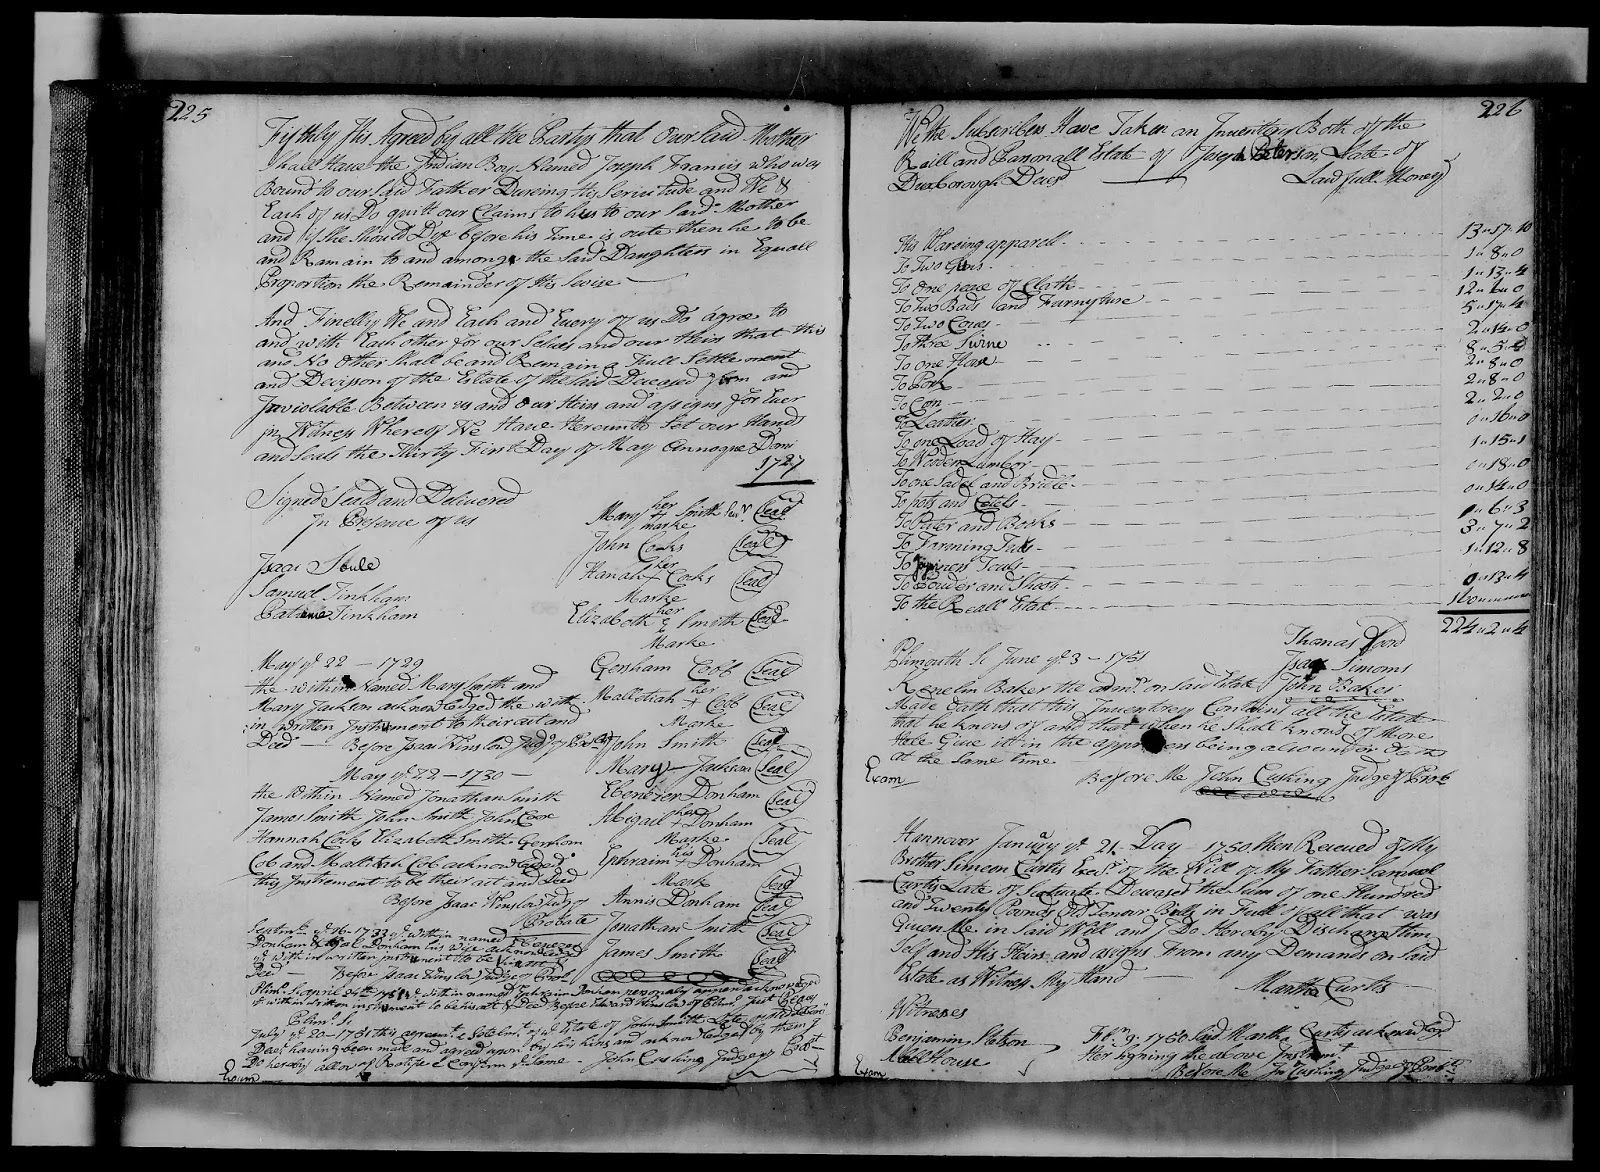 225
Fifthly Its Agreed by all the Partys that Our said Mother
shall Have the Indian Boy Named Joseph Francis who was
Bound to our said Father Dureing His Servitude and We &
Each of us Do quitt our Claims to his to our Said Mother
and if She Should Dye before his Time is oute then he to be
and Remain to and amongs the Said Daughters in Equall
Proportion the Remainder of His
And Finelly We and Each and Every of us Do agree to
and with Each other for our Selves and our Heirs that this
and No Other Shall be and Remain a Full Settlement
and Decision of the Estate of the said Deceased and
Inviolable Between us and Our Heirs and assigns for Ever
In Witness Whereof We Have Hereunto Set our Hands
and Seals the Thirty First Day of May Annoque Domi
1727
Signed Seald and Delivered
In Presence of us
Isaac Soule
Samuel Tinkham
Tinkham
Mary her marke Smith Seal
John Cocks Seal
Hanah her Marke Cocks Seal
Elizabeth her Marke Smith Seal
Gersham Cobb Seal
Mallatiah her Marke Cobb Seal
John Smith Seal
Mary Jackson Seal
Ebenezer Donham Seal
Abigail her Marke Donham Seal
Ephraim his Mark Donham Seal
Annis Donham Seal
Jonathan Smith Seal
James Smith Seal
May ye 22 - 1729
the within Named Mary Smith and
Mary Jackson acknowledged the with
in written Instrument to their act and
Deed - Before Isaac Winslow Judge of Prob
May ye 22 - 1730 -
the Within Named Jonathan Smith
James Smith John Smith John Cox
Hannah Cocks Elizabeth Smith Gershom
Cob and Mallatiah Cob acknowledged
this Instrement to be their act and Deed
Before Isaac Winslow Judg of
Probate
Septmr ye 16 1733 ye within named Ebenezer
Donham & Donham his wife acknowledged
ye within written instrument to be their
Deed - Before Isaac Winslow Judge of Prob
Plim. Ss april 24th ye within named Ephraim Donham personally appeard acknowledged
ye within written instrument to be his act & Deed Before Edward Winslow of
Plim. Ss
July ye 20 - 1751 this agreemt & Settelmt of ye Estate of John Smith Late of
Decd having been made and agreed upon by his heirs and acknowledged by them I
Do hereby allow of Ratifie & Confirm ye Same - John Cushing Judge of Probt
Exam
226
We the Subscribers Have Taken an Inventory Both off the
Reall and Parsonall Estate of Joseph Peterson Late of
Duxborough Decesd Lawfull Money
His Waring apparell - 13 " 17 " 10
To Two Guns - 1 " 8 " 0
To One peace of Cloth - 1 " 13 " 4
To Two Bads and Farnyture - 12
To Two Cows - 5 " 17 " 4
To three Swine 2 " 14 " 0
To one Horse 8 " 5
To Pork - 2 " 8 " 0
To Corn - 2 " 8 " 0
To Leather - 2 " 2 " 0
To one Load of Hay - 0 " 16 " 0
To Wooden Lumbor - 1 " 15 " 1
To one Sadel and Bridle - 0 " 18 " 0
To pots and Cetels - 0 " 14 " 0
To Puter and Books 6 " 3
To Farming Tuls - 3 " 7 " 2
To Touls - 1 " 12 " 8
To Pouder and Shoot - 0 " 13 " 4
To the Reall Estat - 160
224 " 2 " 4
Thomas Lord
Isaac Simons
John Baker
Plimouth Ss June ye 3 - 1751
Kenelm Baker the admr. on said Estate
Made Oath that this Inventory Contains all the Estate
that he knows of and that when he Shall know of More
He'le Give itt in the apprisers being also under Oath
at the same time
Exam
Before Me John Cushing Judge of Prob
Hannover Janury ye 21 Day 1750 then Receued of My
Brother Simeon Curtis Execr of the Will of My Father Samuel
Curtis Late of Scituate Deceased the Sum of one Hundred
and Twenty Pounds Old Tenour Bills in Full of all that was
Given Me in Said Will and I Do Hereby Discharge Him
Self and His Heirs and asigns From any Demands on Said
Estate as Witness My Hand
Martha Curtis
Witneses
Benjamin Stetson
House
Febr 9. 1750 Said Martha Curtis acknowledgd
Her signing the above Instrumt
Before Me Jn Cushing Judge of Prob
Exam